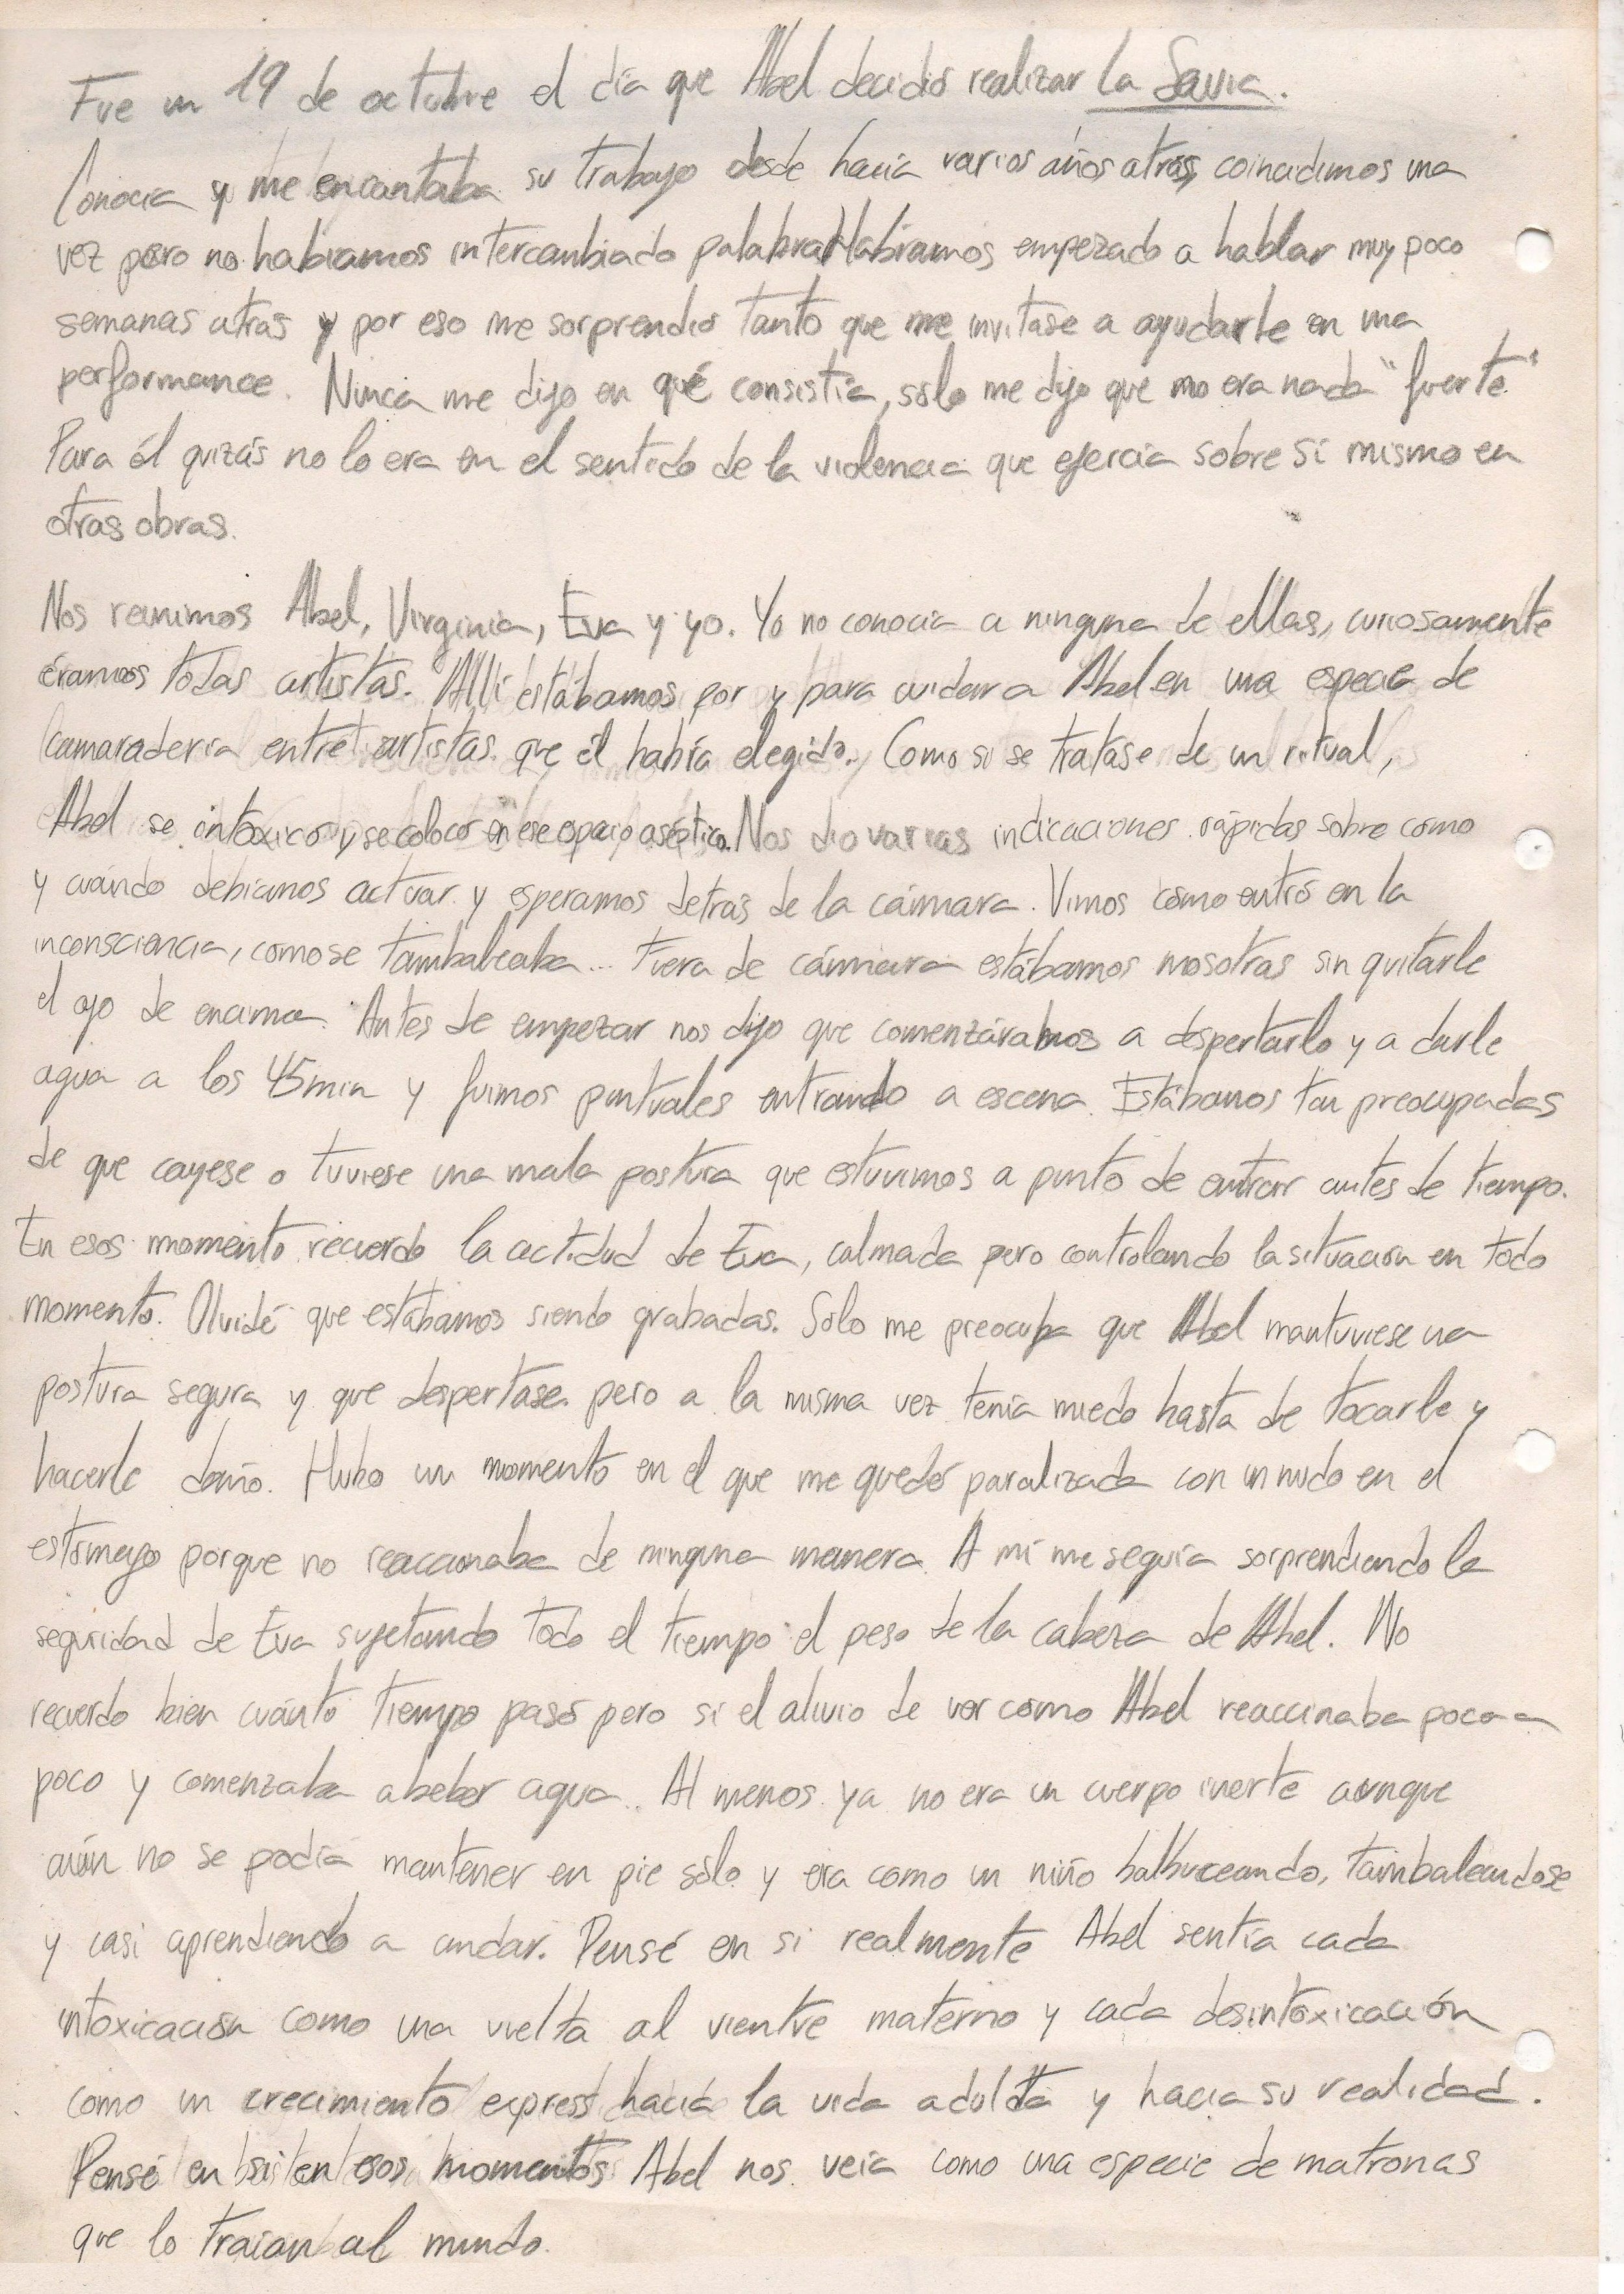 Fue un 19 de octubre el día que Abel decidió realizar La Savia.
Conocía y me encantaba su trabajo desde hacía varios años atrás, coincidimos una
vez pero no habíamos intercambiado palabra. Habíamos empezado a hablar muy poco
semanas atras y por eso me sorprendió tanto que me invitase a ayudarle en una
performance. Nunca me dijo en qué consistía, sólo me dijo que no era nada "fuerte".
Para él quizás no lo era en el sentido de la violencia que ejercía sobre sí mismo en
otras obras.
Nos reunimos Abel, Virginia, Eva y yo. Yo no conocía a ninguna de ellas, curiosamente
éramos todas artistas. Allí estábamos por y para cuidar a Abel en una especie de
camaradería entre artistas que él había elegido. Como si se tratase de un ritual,
Abel se intoxicó y se colocó en ese espacio aséptico. Nos dio varias indicaciones rápidas sobre cómo
y cuándo debíamos actuar y esperamos detrás de la cámara. Vimos cómo entró en la
inconsciencia, como se tambaleaba... Fuera de cámara estábamos nosotras sin quitarle
el ojo de encima. Antes de empezar nos dijo que comenzáramos a despertarlo y a darle
agua a los 45min y fuimos puntuales entrando a escena. Estábamos tan preocupadas
de que cayese o tuviese una mala postura que estuvimos a punto de entrar antes de tiempo.
En esos momento recuerdo la actidud de Eva, calmada pero controlando la situación en todo
momento. Olvidé que estábamos siendo grabadas. Sólo me preocupa que Abel mantuviese una
postura segura y que despertase pero a la misma vez tenía miedo hasta de tocarle y
hacerle daño. Hubo un momento en el que me quedé paralizada con un nudo en el
estómago porque no reaccionaba de ninguna manera. A mí me seguía sorprendiendo la
seguridad de Eva sujetando todo el tiempo el peso de la cabeza de Abel. No
recuerdo bien cuánto tiempo pasó pero sí el alivio de ver como Abel reaccinaba poco a
poco y comenzaba a beber agua. Al menos ya no era un cuerpo inerte aunque
aún no se podía mantener en pie sólo y era como un niño balbuceando, tambaleandose
y casi aprendiendo a andar. Pensé en si realmente Abel sentía cada
intoxicación como una vuelta al vientre materno y cada desintoxicación
como un crecimiento express hacia la vida adulta y hacia su realidad.
Pensé en si en esos momentos Abel nos veía como una especie de matronas
que lo traían al mundo.